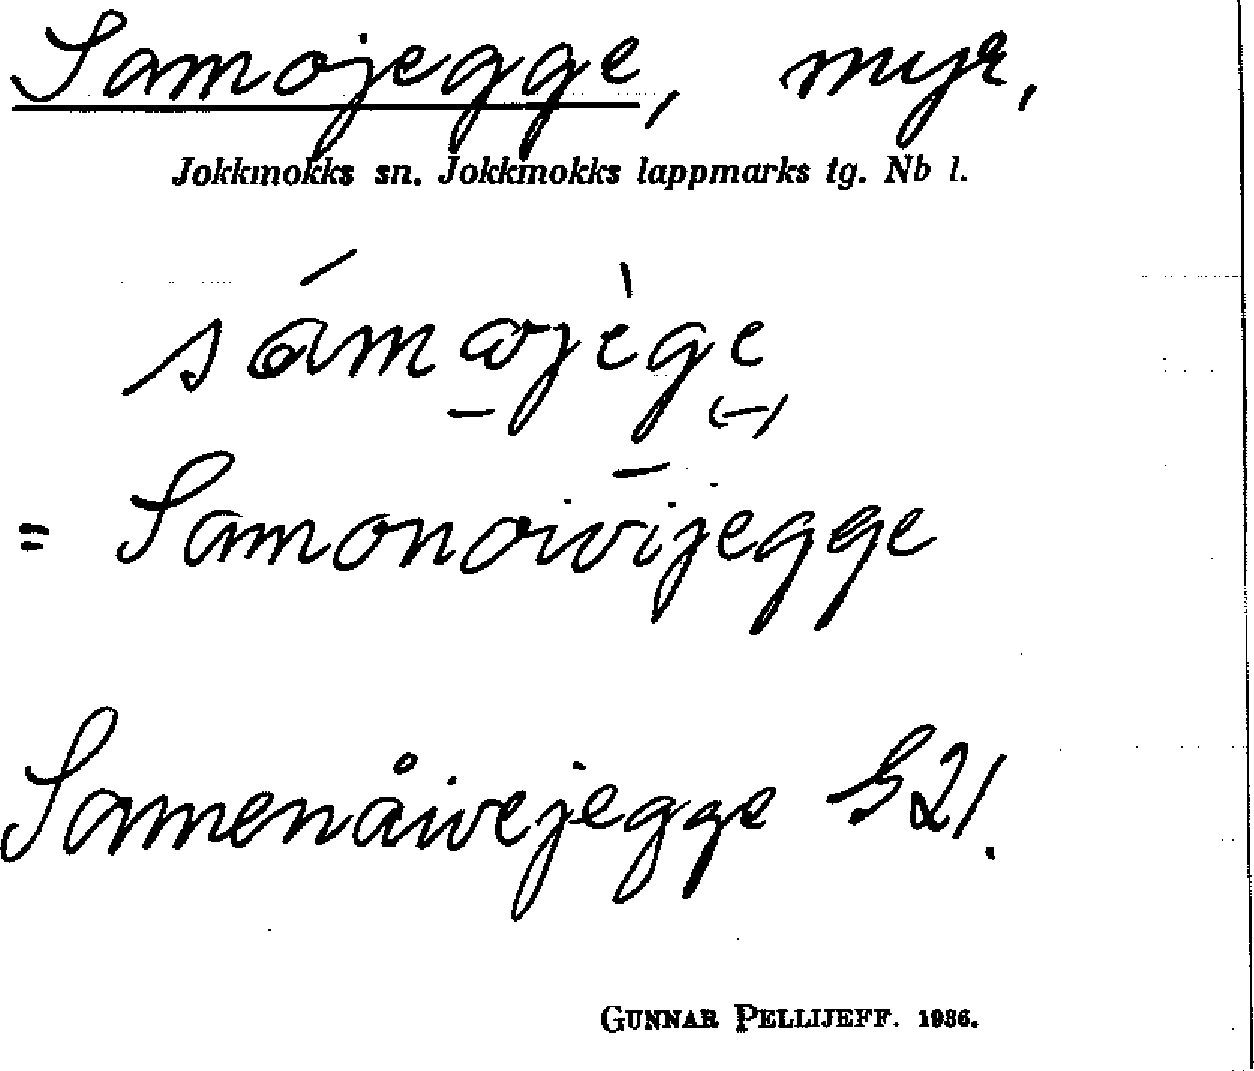 Samojegge, myr,
Jokkmokks sn. Jokkmokks lappmarks tg. Nb l.
= Samonoivijegge
Samenåivejegge S21.
GUNNAR PELLIJEFF. 1936.